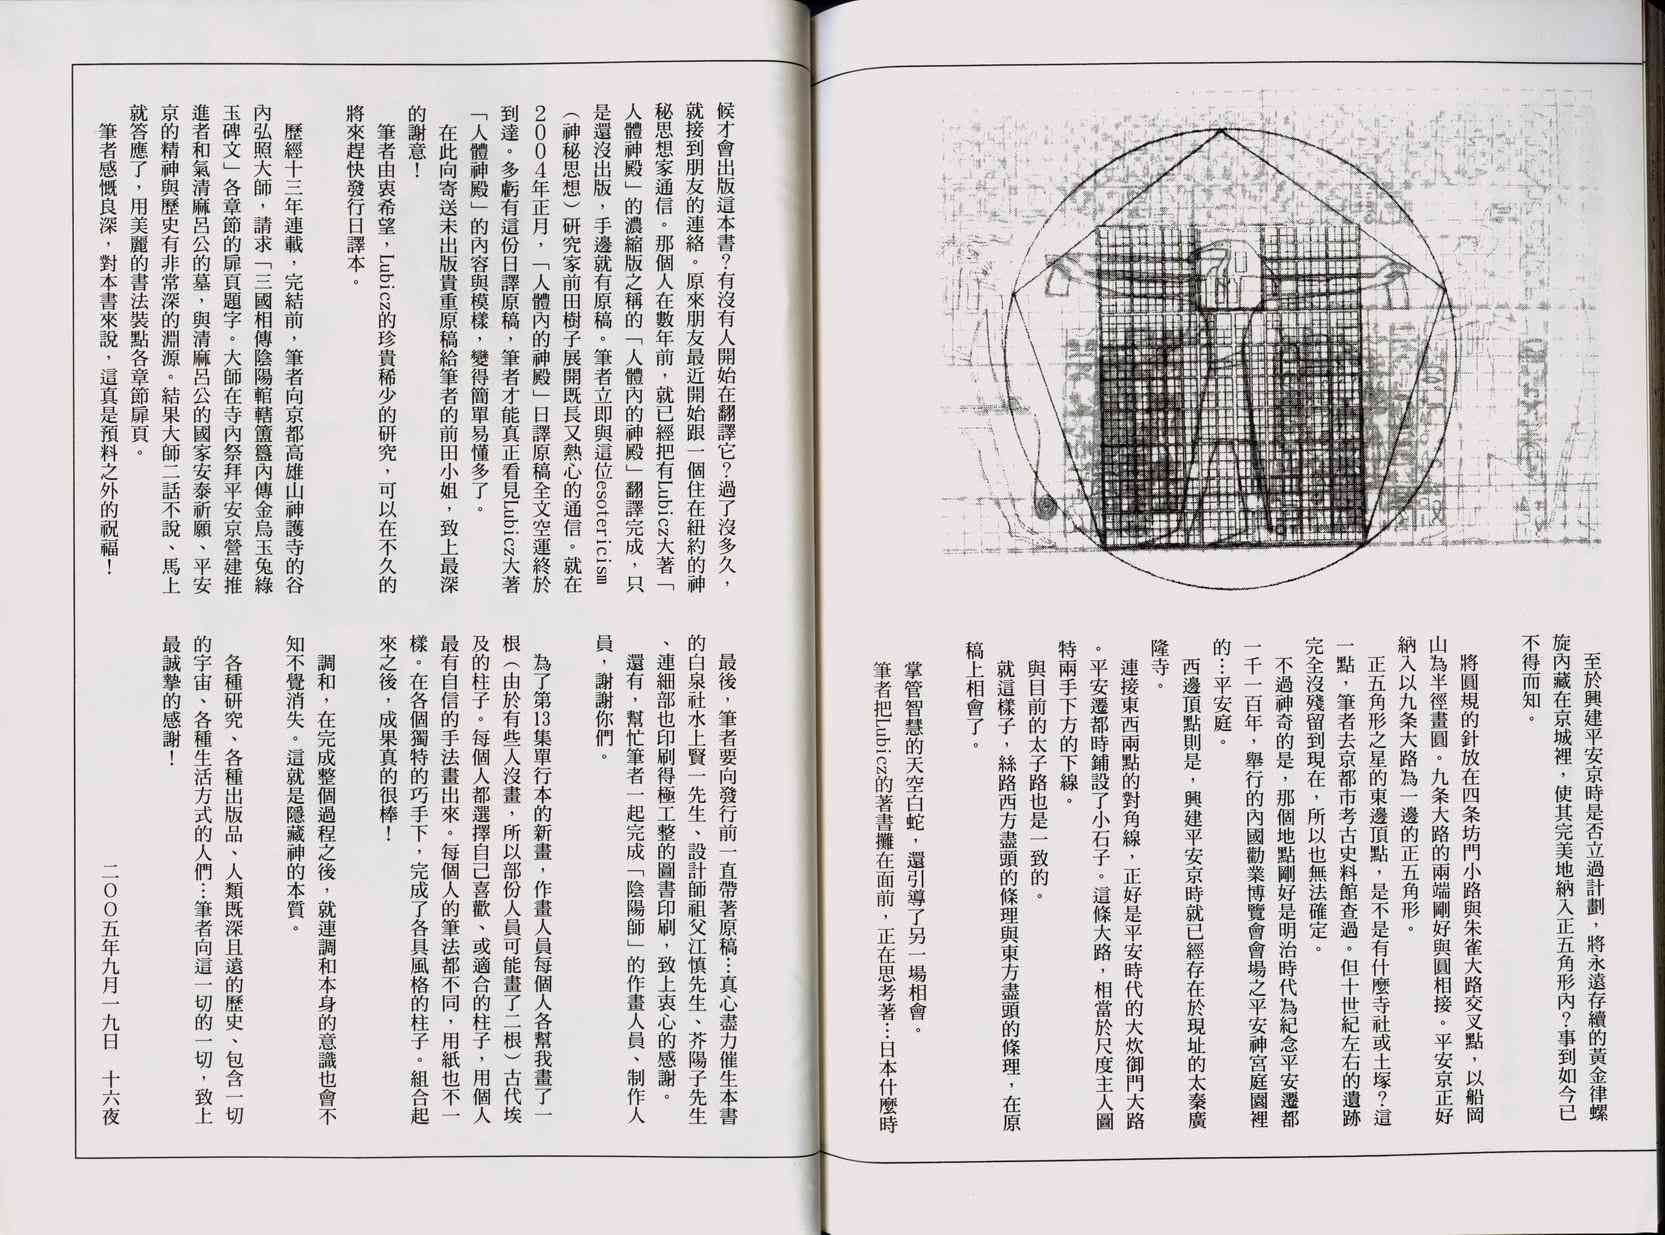 至於興建平安京時是否立過計劃，將永遠存續的黃金律螺
旋內藏在京城裡，使其完美地納入正五角形內？事到如今已
不得而知。
將圓規的針放在四条坊門小路與朱雀大路交叉點，以船岡
山為半徑畫圓。九条大路的兩端剛好與圓相接。平安京正好
納入以九条大路為一邊的正五角形。
正五角形之星的東邊頂點，是不是有什麼寺社或土塚？這
一點，筆者去京都市考古史料館查過。但十世紀左右的遺跡
完全沒殘留到現在，所以也無法確定。
不過神奇的是，那個地點剛好是明治時代為紀念平安遷都
一千一百年，舉行的內國勸業博覽會會場之平安神宮庭園裡
的…平安庭。
西邊頂點則是，興建平安京時就已經存在於現址的太秦廣
隆寺。
連接東西兩點的對角線，正好是平安時代的大炊御門大路
。平安遷都時鋪設了小石子。這條大路，相當於尺度主人圖
特兩手下方的下線。
與目前的太子路也是一致的。
就這樣子，絲路西方盡頭的條理與東方盡頭的條理，在原
稿上相會了。
掌管智慧的天空白蛇，還引導了另一場相會。
筆者把Lubicz的著書攤在面前，正在思考著…日本什麼時
候才會出版這本書？有沒有人開始在翻譯它？過了沒多久，
就接到朋友的連絡。原來朋友最近開始跟一個住在紐約的神
秘思想家通信。那個人在數年前，就已經把有Lubicz大著「
人體神殿」的濃縮版之稱的「人體內的神殿」翻譯完成，只
是還沒出版，手邊就有原稿。筆者立即與這位esotericism
（神秘思想）研究家前田樹子展開既長又熱心的通信。就在
２００４年正月，「人體內的神殿」日譯原稿全文空運終於
到達。多虧有這份日譯原稿，筆者才能真正看見Lubicz大著
「人體神殿」的內容與模樣，變得簡單易懂多了。
在此向寄送未出版貴重原稿給筆者的前田小姐，致上最深
的謝意！
筆者由衷希望，Lubicz的珍貴稀少的研究，可以在不久的
將來趕快發行日譯本。
歷經十三年連載，完結前，筆者向京都高雄山神護寺的谷
內弘照大師，請求「三國相傳陰陽輨轄簠簋內傳金烏玉兔綠
玉碑文」各章節的扉頁題字。大師在寺內祭拜平安京營建推
進者和氣清麻呂公的墓，與清麻呂公的國家安泰祈願、平安
京的精神與歷史有非常深的淵源。結果大師二話不說、馬上
就答應了，用美麗的書法裝點各章節扉頁。
筆者感慨良深，對本書來說，這真是預料之外的祝福！
最後，筆者要向發行前一直帶著原稿…真心盡力催生本書
的白泉社水上賢一先生、設計師祖父江慎先生、芥陽子先生
、連細部也印刷得極工整的圖書印刷，致上衷心的感謝。
還有，幫忙筆者一起完成「陰陽師」的作畫人員、制作人
員，謝謝你們。
為了第13集單行本的新畫，作畫人員每個人各幫我畫了一
根（由於有些人沒畫，所以部份人員可能畫了二根）古代埃
及的柱子。每個人都選擇自己喜歡、或適合的柱子，用個人
最有自信的手法畫出來。每個人的筆法都不同，用紙也不一
樣。在各個獨特的巧手下，完成了各具風格的柱子。組合起
來之後，成果真的很棒！
調和，在完成整個過程之後，就連調和本身的意識也會不
知不覺消失。這就是隱藏神的本質。
各種研究、各種出版品、人類既深且遠的歷史、包含一切
的宇宙、各種生活方式的人們…筆者向這一切的一切，致上
最誠摯的感謝！
二００五年九月一九日　十六夜